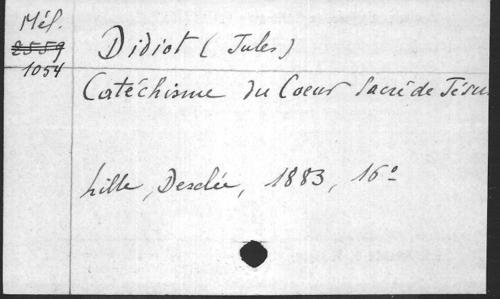 Mél.
2559
1054
Didiot (Jules)
Catéchisme du Coeur Sacré de Jésu
Lille, Desclée, 1883, 16º